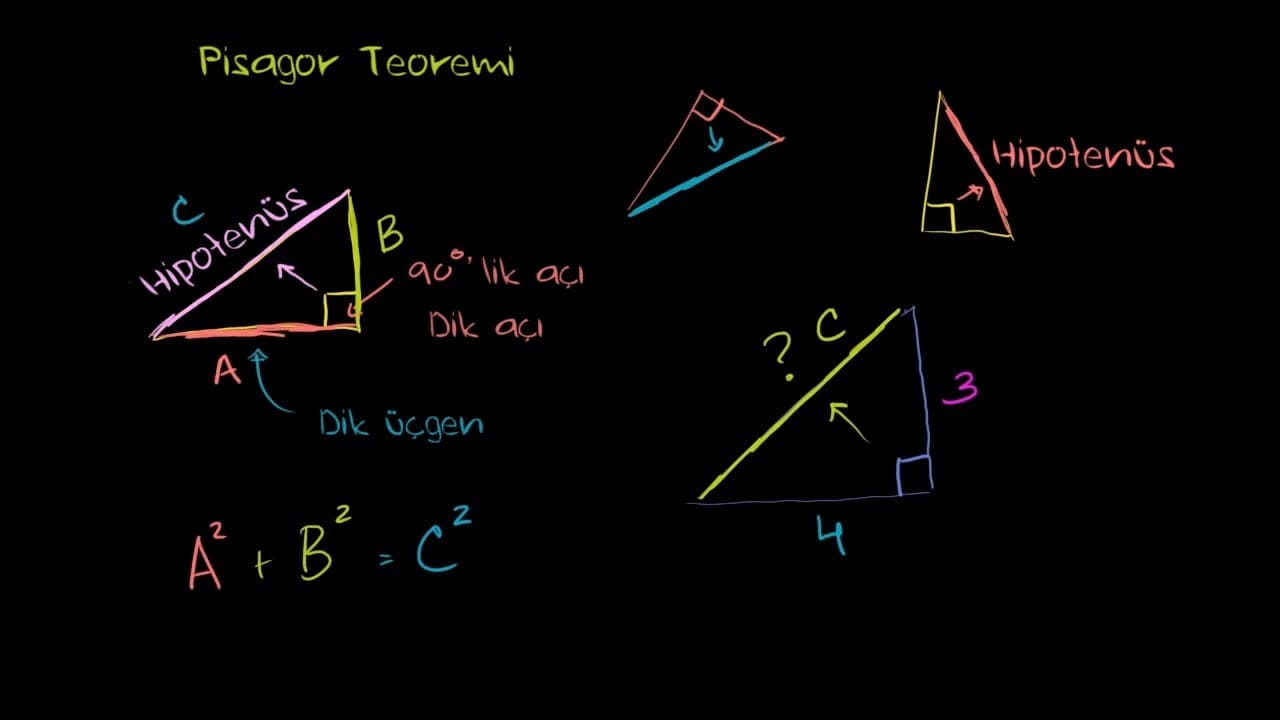 Pisagor Teoremi
Hipotenüs
C
Hipotenüs
B
90°'lik açı
Dik açı
A
Dik üçgen
? C
3
4
A² + B² = C²